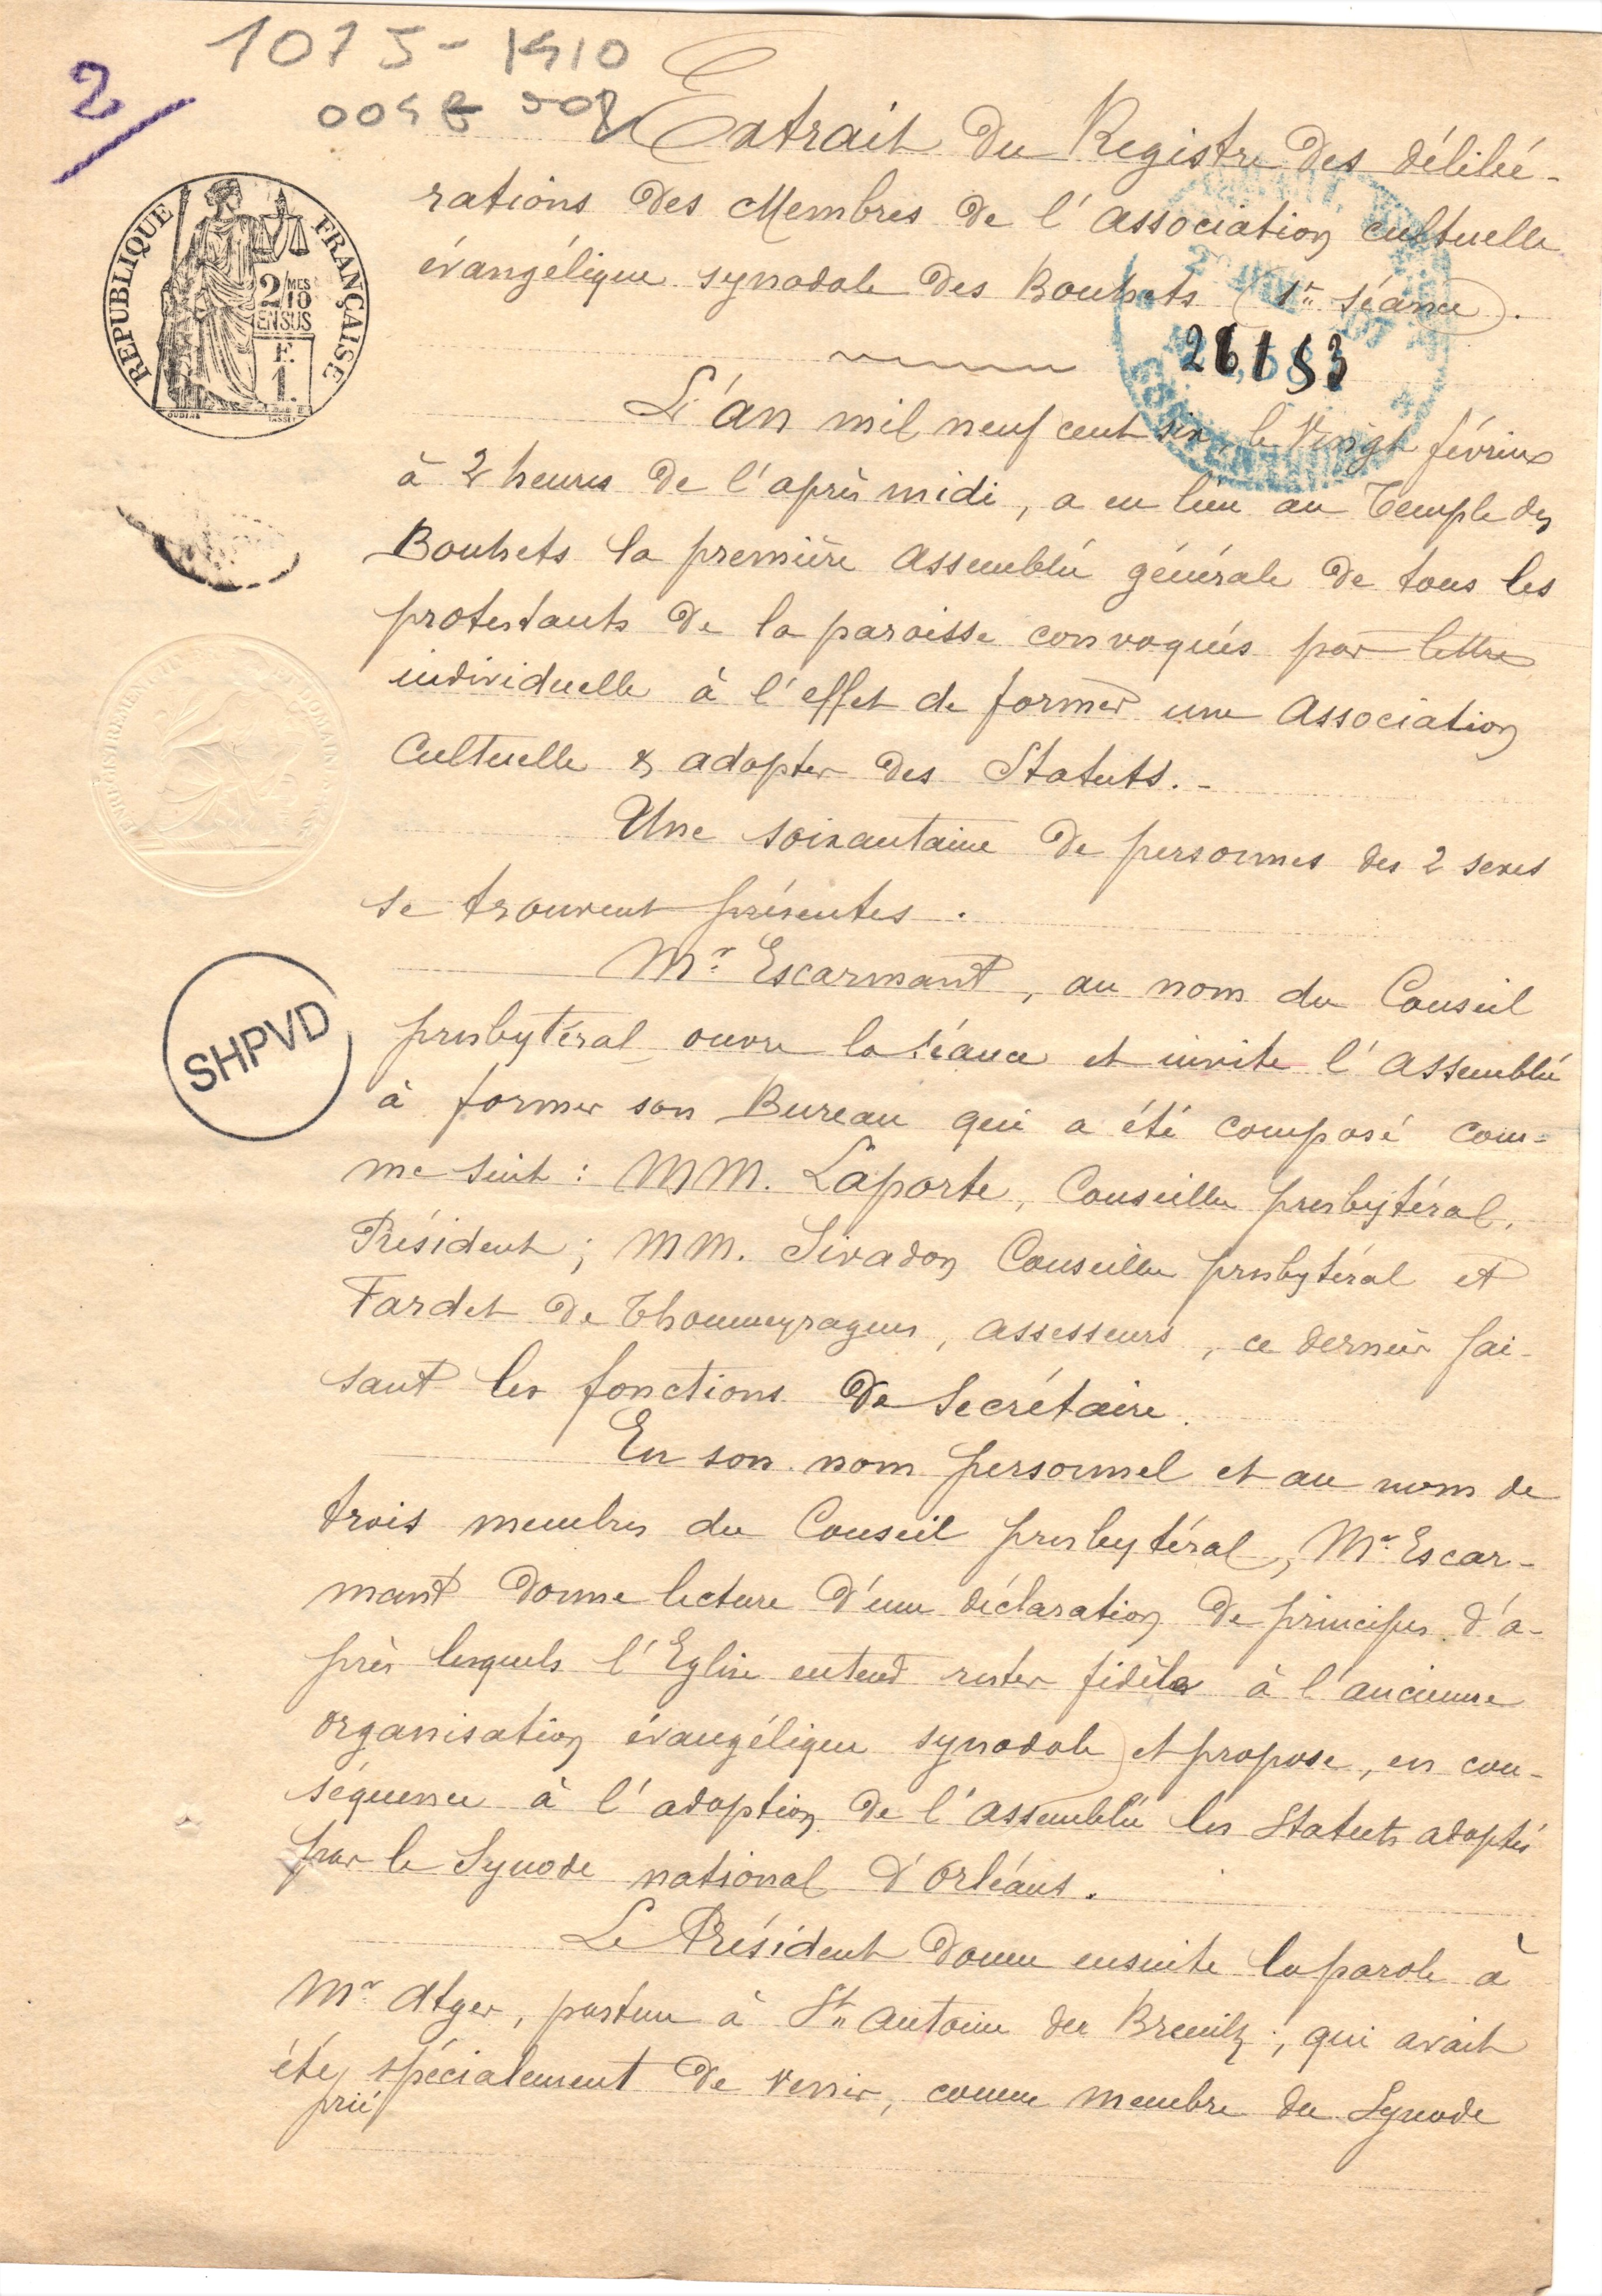 1075 - 1910
2/
Extrait du Registre des délibé-
rations des Membres de l'association cultuelle
évangélique synodale des Bouhets (1re séance).
REPUBLIQUE FRANÇAISE
2/10MES
EN SUS
F.
1.
26153
L'an mil neuf cent six le Vingt février
à 2 heures de l'après midi, a eu lieu au Temple des
Bouhets la première assemblée générale de tous les
protestants de la paroisse convoqués par lettre
individuelle à l'effet de former une Association
Cultuelle & adopter des Statuts.-
Une soixantaine de personnes des 2 sexes
se trouvent présentes.
Mr Escarmant, au nom du Conseil
presbytéral ouvre la séance et invite l'assemblée
SHPVD
à former son Bureau qui a été composé com-
me suit : MM. Laporte, Conseiller presbytéral,
Président ; MM. Sivadon Conseiller presbytéral et
Fardet de Thoumeyragues, assesseurs, ce dernier fai-
sant les fonctions de Secrétaire.
En son nom personnel et au nom de
trois membres du Conseil presbytéral, Mr Escar-
mant donne lecture d'une déclaration de principes d'a-
près lesquels l'Eglise entend rester fidèle à l'ancienne
organisation évangélique synodale) et propose, en con-
séquence à l'adoption de l'assemblée les Statuts adoptés
par le Synode national d'Orléans.
Le Président donne ensuite la parole à
Mr Atger, pasteur à St Antoine du Breuilh ; qui avait
été spécialement de venir, comme membre du Synode
prié